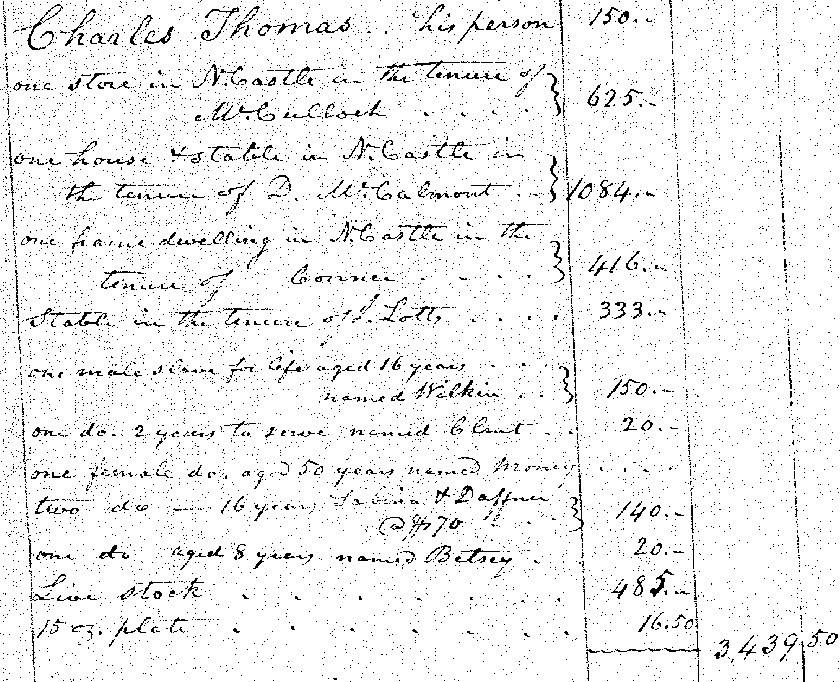 Charles Thomas . . his person 150.-
one store in N. Castle in the tenure of
McCulloch . . . . } 625.-
one house & stable in N. Castle in
the tenure of D. McCalmont . - } 1084.-
one frame dwelling in N. Castle in the
tenure of Conner . . . . } 416.-
Stable in the tenure of J. Lotts . . . . 333.-
one male slave for life aged 16 years . . .
named Wilkin . . } 150.-
one do. 2 years to serve named . . 20.-
one female do. aged 50 years named . . . .
two do — 16 years & Daffner
@ $70 . . . } 140.-
one do aged 8 years named Betsey . . 20.-
Live stock . . . . . . 485.-
15 oz. plate . . . . . . 16.50
3,439,50